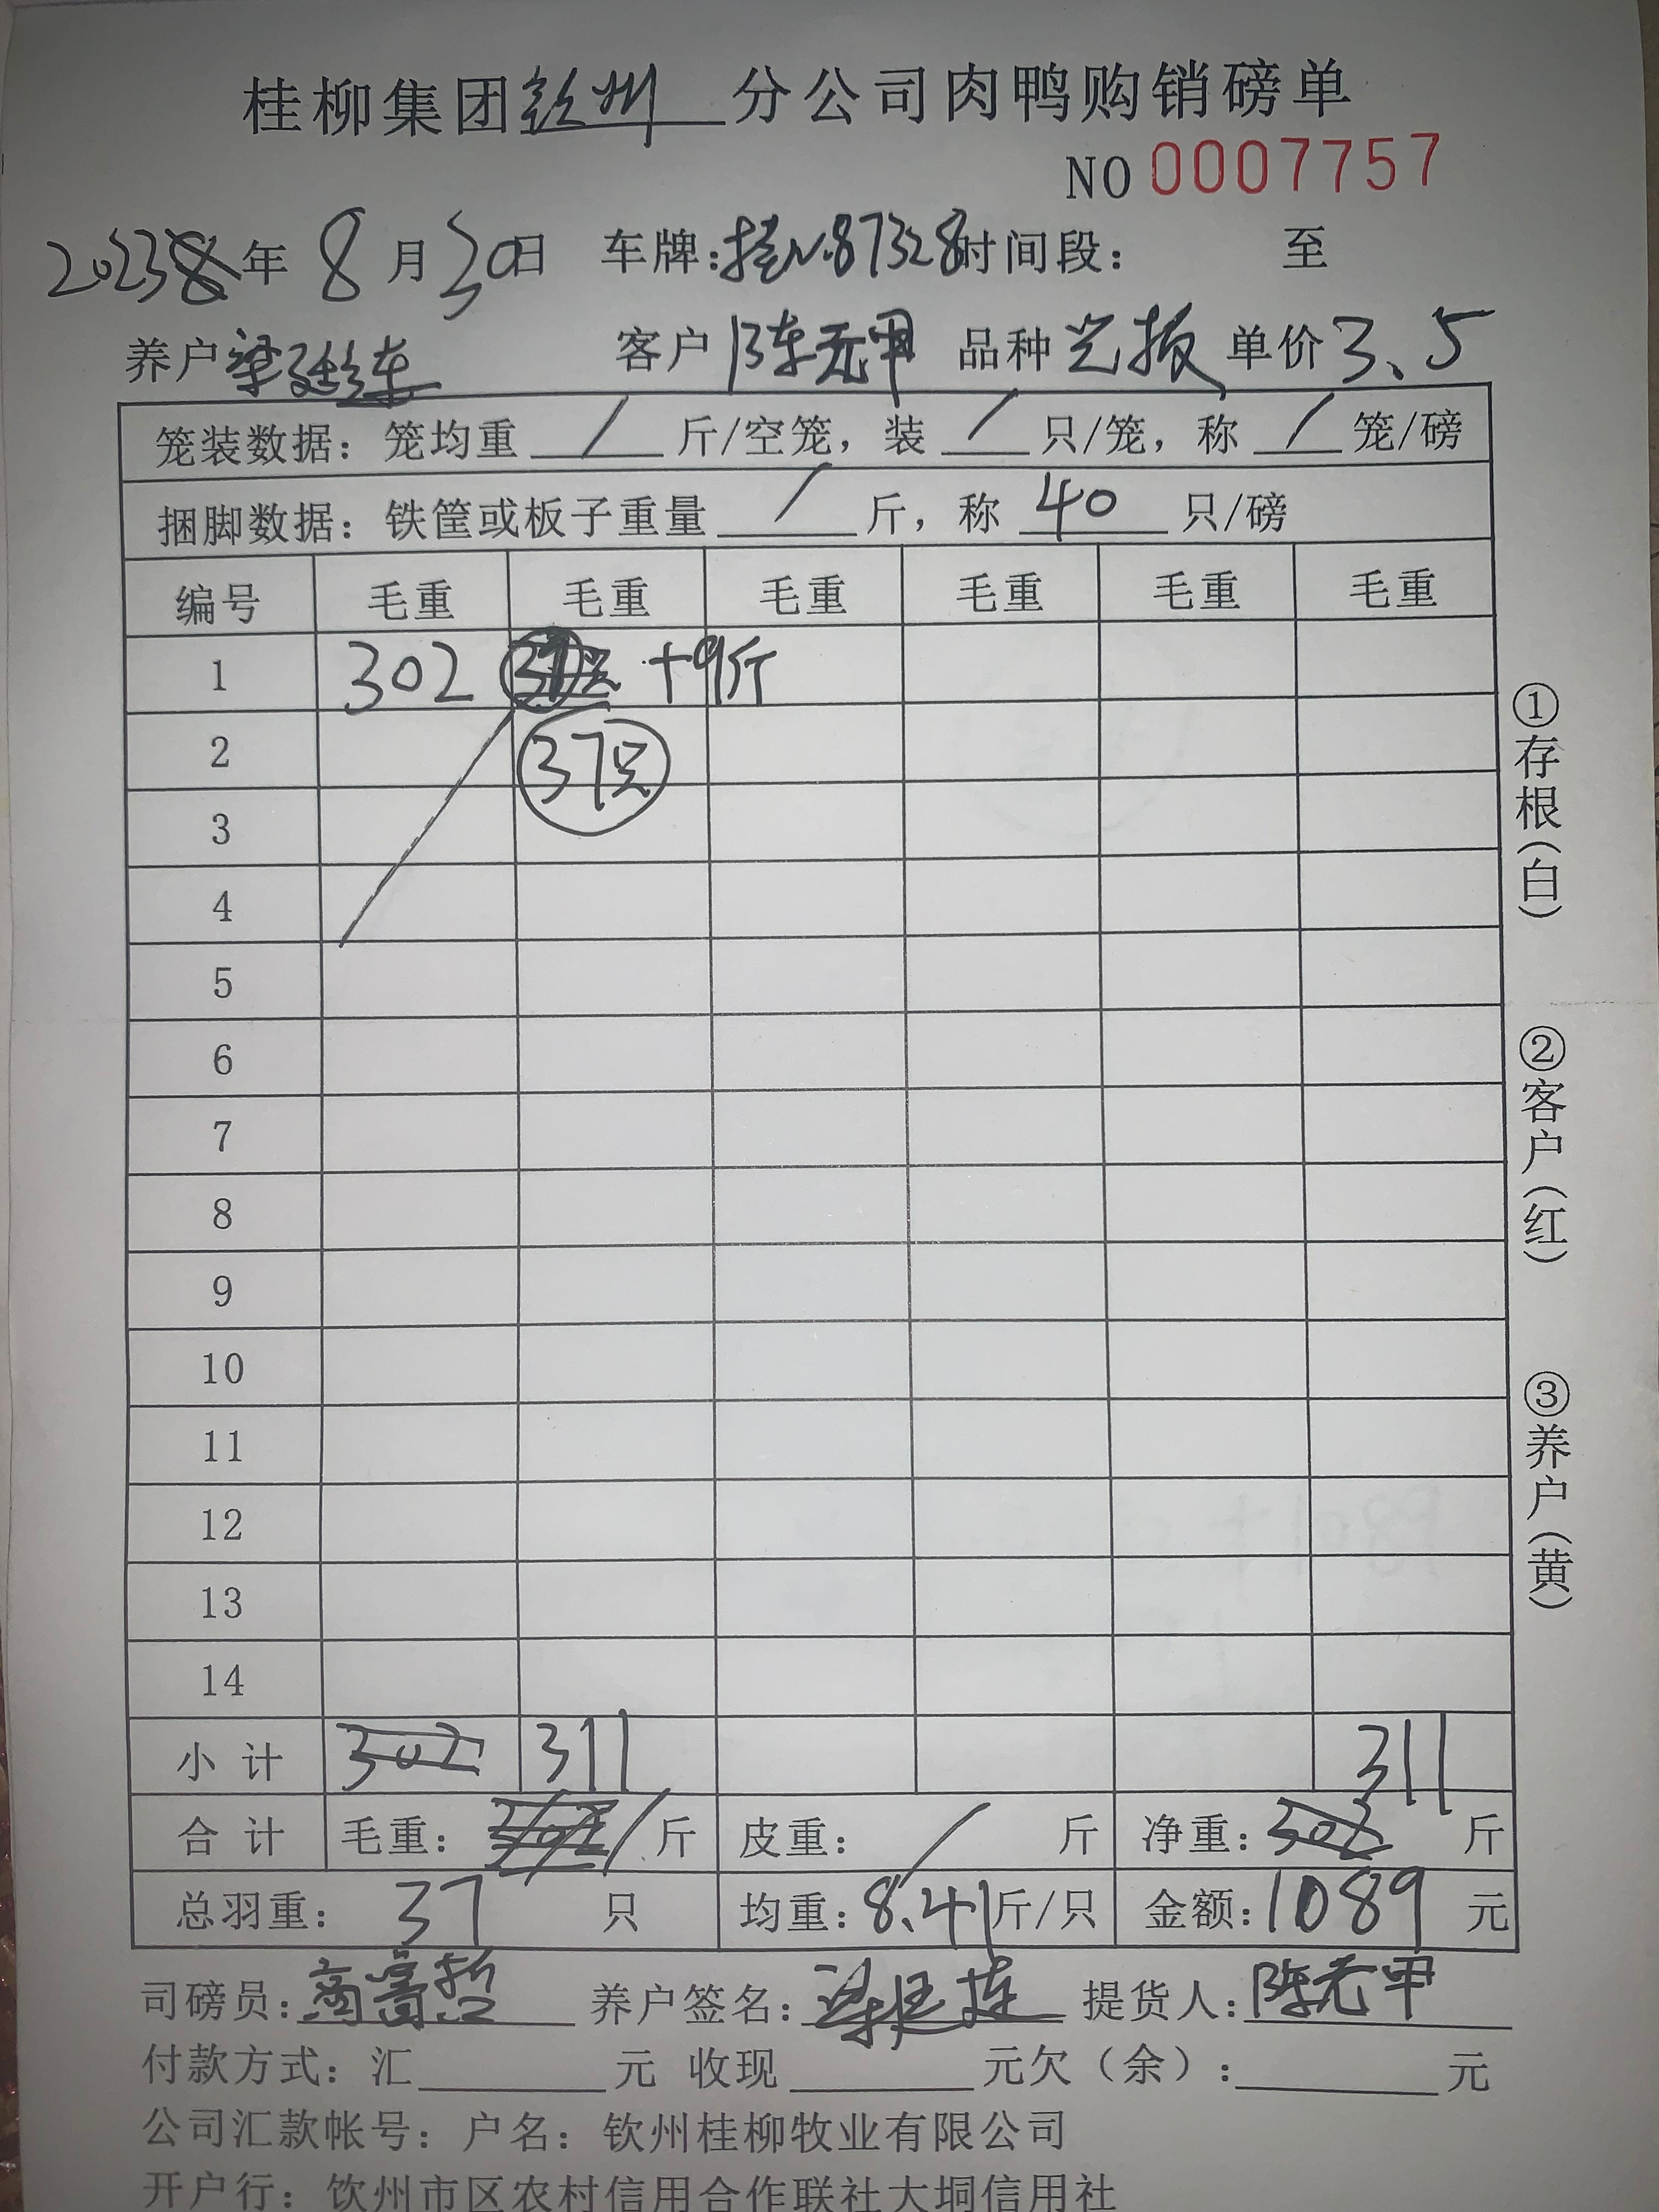 桂柳集团钦州分公司肉鸭购销磅单
NO 0007757
2023年8月30日 车牌:桂N·87328 时间段: 至
养户 梁廷连 客户 陈元甲 品种 光板 单价 3.5
笼装数据: 笼均重 / 斤/空笼, 装 / 只/笼, 称 / 笼/磅
捆脚数据: 铁筐或板子重量 / 斤, 称 40 只/磅
编号 毛重 毛重 毛重 毛重 毛重 毛重
1 302 37只 +9斤
2 37只
3
4
5
6
7
8
9
10
11
12
13
14
小计 302 311 311
合计 毛重: 302 / 斤 皮重: / 斤 净重: 302 斤
总羽重: 37 只 均重: 8.41 斤/只 金额: 1089 元
司磅员: 养户签名: 梁廷连 提货人: 陈元甲
付款方式: 汇 元 收现 元欠(余): 元
公司汇款帐号: 户名: 钦州桂柳牧业有限公司
开户行: 钦州市区农村信用合作联社大垌信用社
①存根(白)
②客户(红)
③养户(黄)